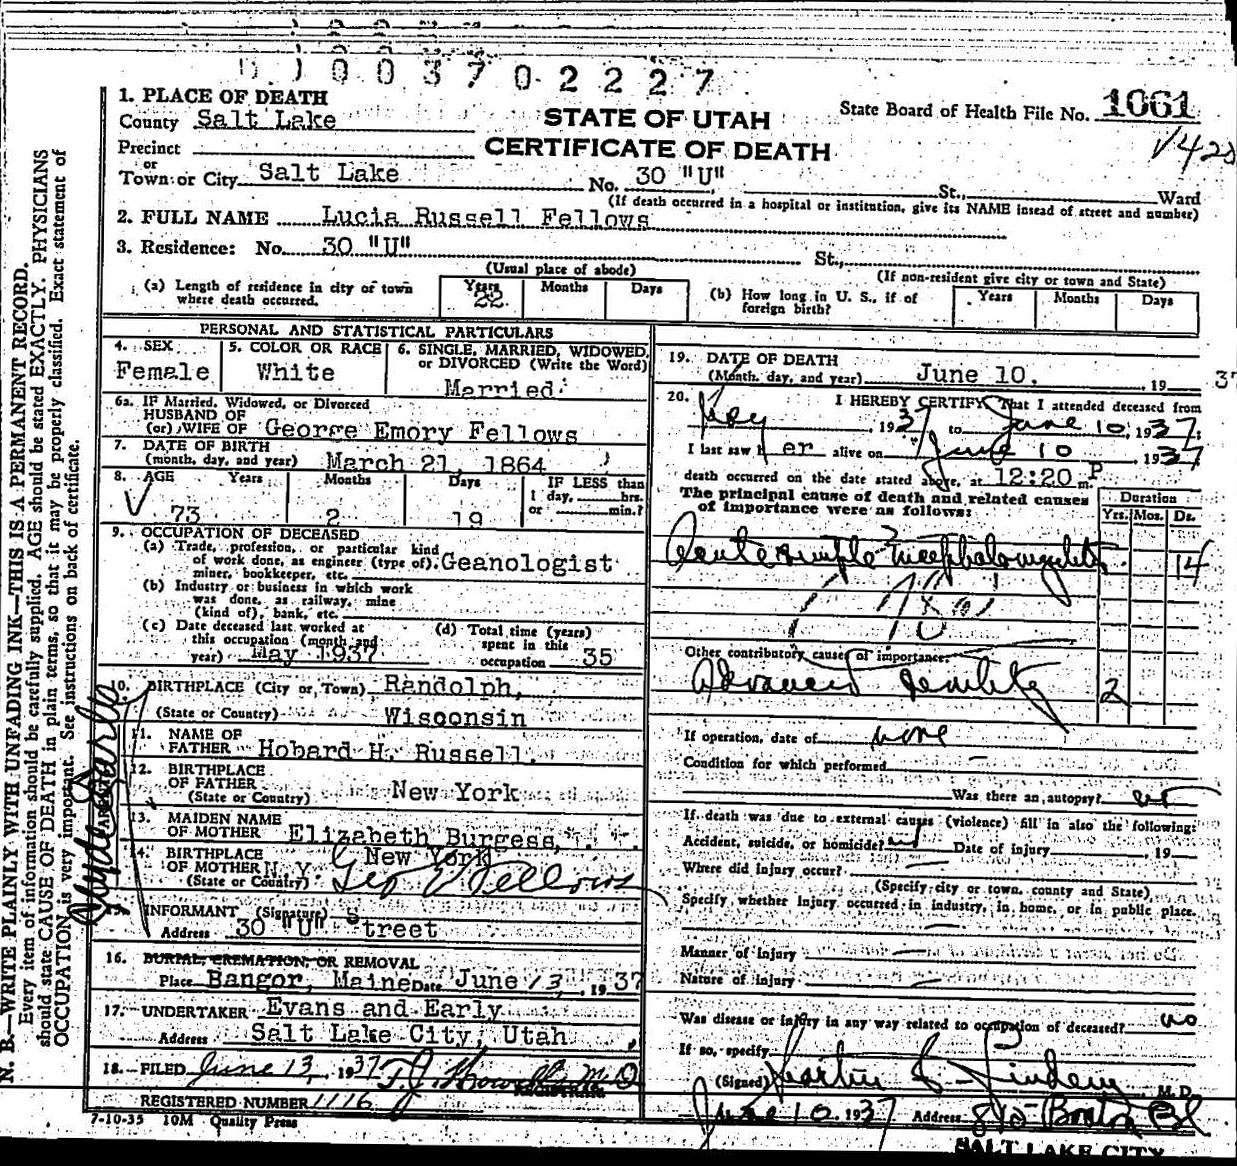 0 0 3 7 0 2 2 2 7
1. PLACE OF DEATH
County Salt Lake
STATE OF UTAH
CERTIFICATE OF DEATH
State Board of Health File No. 1061
Precinct
or
Town or City Salt Lake No. 30 "U" St., Ward
(If death occurred in a hospital or institution, give its NAME insead of street and number)
2. FULL NAME Lucia Russell Fellows
3. Residence: No. 30 "U" St.,
(Usual place of abode) (If non-resident give city or town and State)
(a) Length of residence in city or town where death occurred. Years 22 Months Days
(b) How long in U. S., if of foreign birth? Years Months Days
PERSONAL AND STATISTICAL PARTICULARS
4. SEX Female
5. COLOR OR RACE White
6. SINGLE, MARRIED, WIDOWED, or DIVORCED (Write the Word) Married
6a. IF Married, Widowed, or Divorced
HUSBAND OF
(or) WIFE OF George Emory Fellows
7. DATE OF BIRTH
(month, day, and year) March 21, 1864
8. AGE Years Months Days IF LESS than
1 day, hrs.
or min.?
73 2 19
9. OCCUPATION OF DECEASED
(a) Trade, profession, or particular kind
of work done, as engineer (type of), Geanologist
miner, bookkeeper, etc.
(b) Industry or business in which work
was done, as railway, mine
(kind of), bank, etc.
(c) Date deceased last worked at
this occupation (month and
year) May 1937
(d) Total time (years)
spent in this
occupation 35
10. BIRTHPLACE (City or Town) Randolph,
(State or Country) Wisconsin
11. NAME OF
FATHER Hobard H. Russell
12. BIRTHPLACE
OF FATHER
(State or Country) New York
13. MAIDEN NAME
OF MOTHER Elizabeth Burgess,
14. BIRTHPLACE
OF MOTHER N.Y. New York
(State or Country)
Geo E Fellows
INFORMANT (Signature)
Address 30 "U" Street
16. BURIAL, CREMATION, OR REMOVAL
Place Bangor, Maine Date June 13, 1937
17. UNDERTAKER Evans and Early
Address Salt Lake City, Utah
18. FILED June 13, 1937 T. J. Howells M D
REGISTRAR
REGISTERED NUMBER 1116
7-10-35 10M Quality Press
19. DATE OF DEATH
(Month, day, and year) June 10. , 19 37
20. I HEREBY CERTIFY, That I attended deceased from
, 1937 to June 10, 1937;
I last saw her alive on June 10 1937
death occurred on the date stated above, at 12:20 P m.
The principal cause of death and related causes
of importance were as follows:
Duration
Yrs. Mos. Ds.
Acute simple 14
Other contributory causes of importance:
Advanced 2
If operation, date of none
Condition for which performed
Was there an autopsy? no
If death was due to external causes (violence) fill in also the following:
Accident, suicide, or homicide? Date of injury , 19
Where did injury occur?
(Specify city or town, county and State)
Specify whether injury occurred in industry, in home, or in public place.
Manner of injury
Nature of injury
Was disease or injury in any way related to occupation of deceased? no
If so, specify
(Signed) M. D.
June 10 1937 Address
SALT LAKE CITY
N. B.—WRITE PLAINLY WITH UNFADING INK—THIS IS A PERMANENT RECORD.
Every item of information should be carefully supplied. AGE should be stated EXACTLY. PHYSICIANS
should state CAUSE OF DEATH in plain terms, so that it may be properly classified. Exact statement of
OCCUPATION is very important. See instructions on back of certificate.